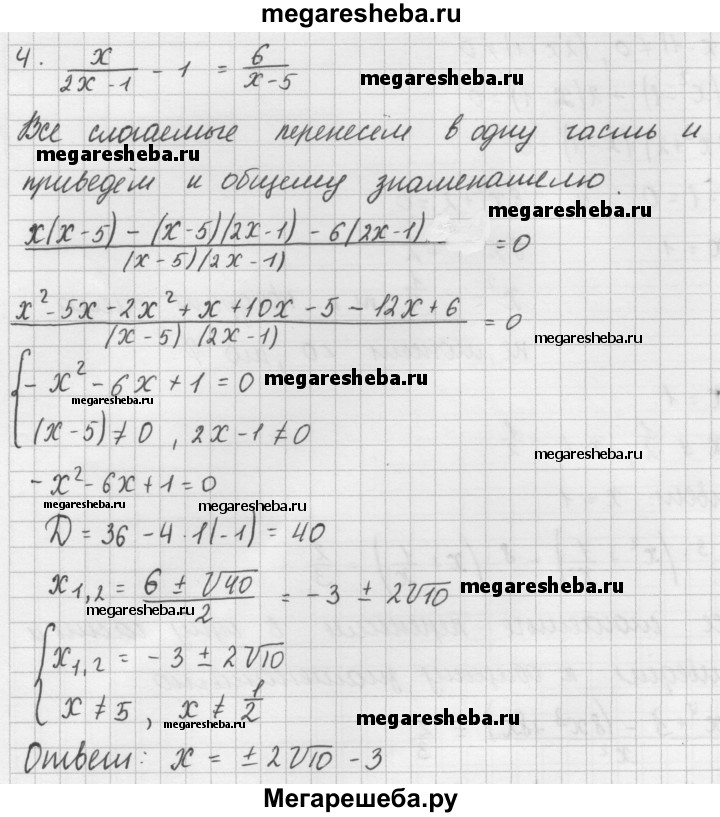 megaresheba.ru
4. x/(2x-1) - 1 = 6/(x-5)
megaresheba.ru
Все слагаемые перенесём в одну часть и
megaresheba.ru
приведём к общему знаменателю.
megaresheba.ru
(x(x-5) - (x-5)(2x-1) - 6(2x-1))/((x-5)(2x-1)) = 0
(x² - 5x - 2x² + x + 10x - 5 - 12x + 6)/((x-5)(2x-1)) = 0
megaresheba.ru
{ - x² - 6x + 1 = 0
megaresheba.ru
megaresheba.ru
(x-5) ≠ 0, 2x-1 ≠ 0
megaresheba.ru
- x² - 6x + 1 = 0
megaresheba.ru
megaresheba.ru
D = 36 - 4 · 1(-1) = 40
x₁,₂ = (6 ± √40)/2 = - 3 ± 2√10
megaresheba.ru
megaresheba.ru
{ x₁,₂ = - 3 ± 2√10
megaresheba.ru
x ≠ 5, x ≠ 1/2
megaresheba.ru
megaresheba.ru
Ответ: x = ± 2√10 - 3
Мегарешеба.ру